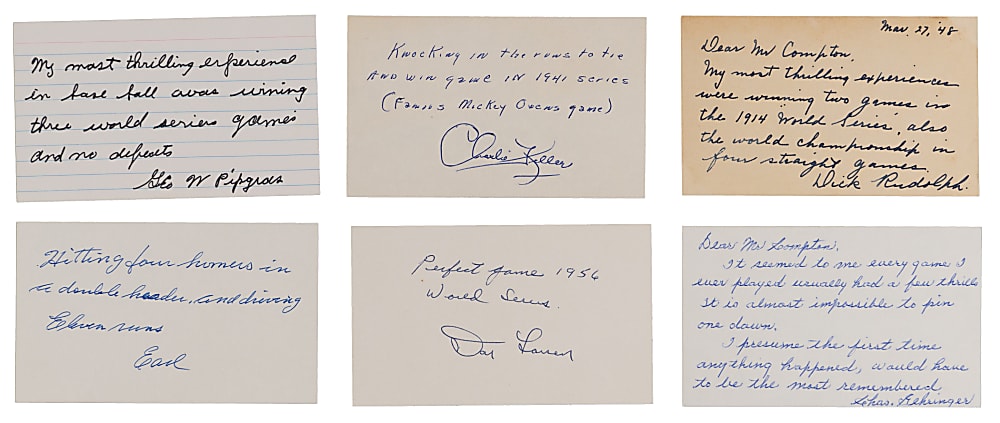 My most thrilling experience
in base ball was wining
three world series games
and no defeats
Geo W Pipgras
Knocking in the runs to tie
and win game in 1941 series
(Famous Mickey Owens game)
Charlie Keller
Mar. 27, '48
Dear Mr Compton.
My most thrilling experiences
were winning two games in
the 1914 World Series, also
the world championship in
four straight games.
Dick Rudolph.
Hitting four homers in
a double header, and driving
Eleven runs
Earl
Perfect game 1956
World Series.
Don Larsen
Dear Mr Compton.
It seemed to me every game I
ever played usually had a few thrills
It is almost impossible to pin
one down.
I presume the first time
anything happened, would have
to be the most remembered
Chas. Gehringer